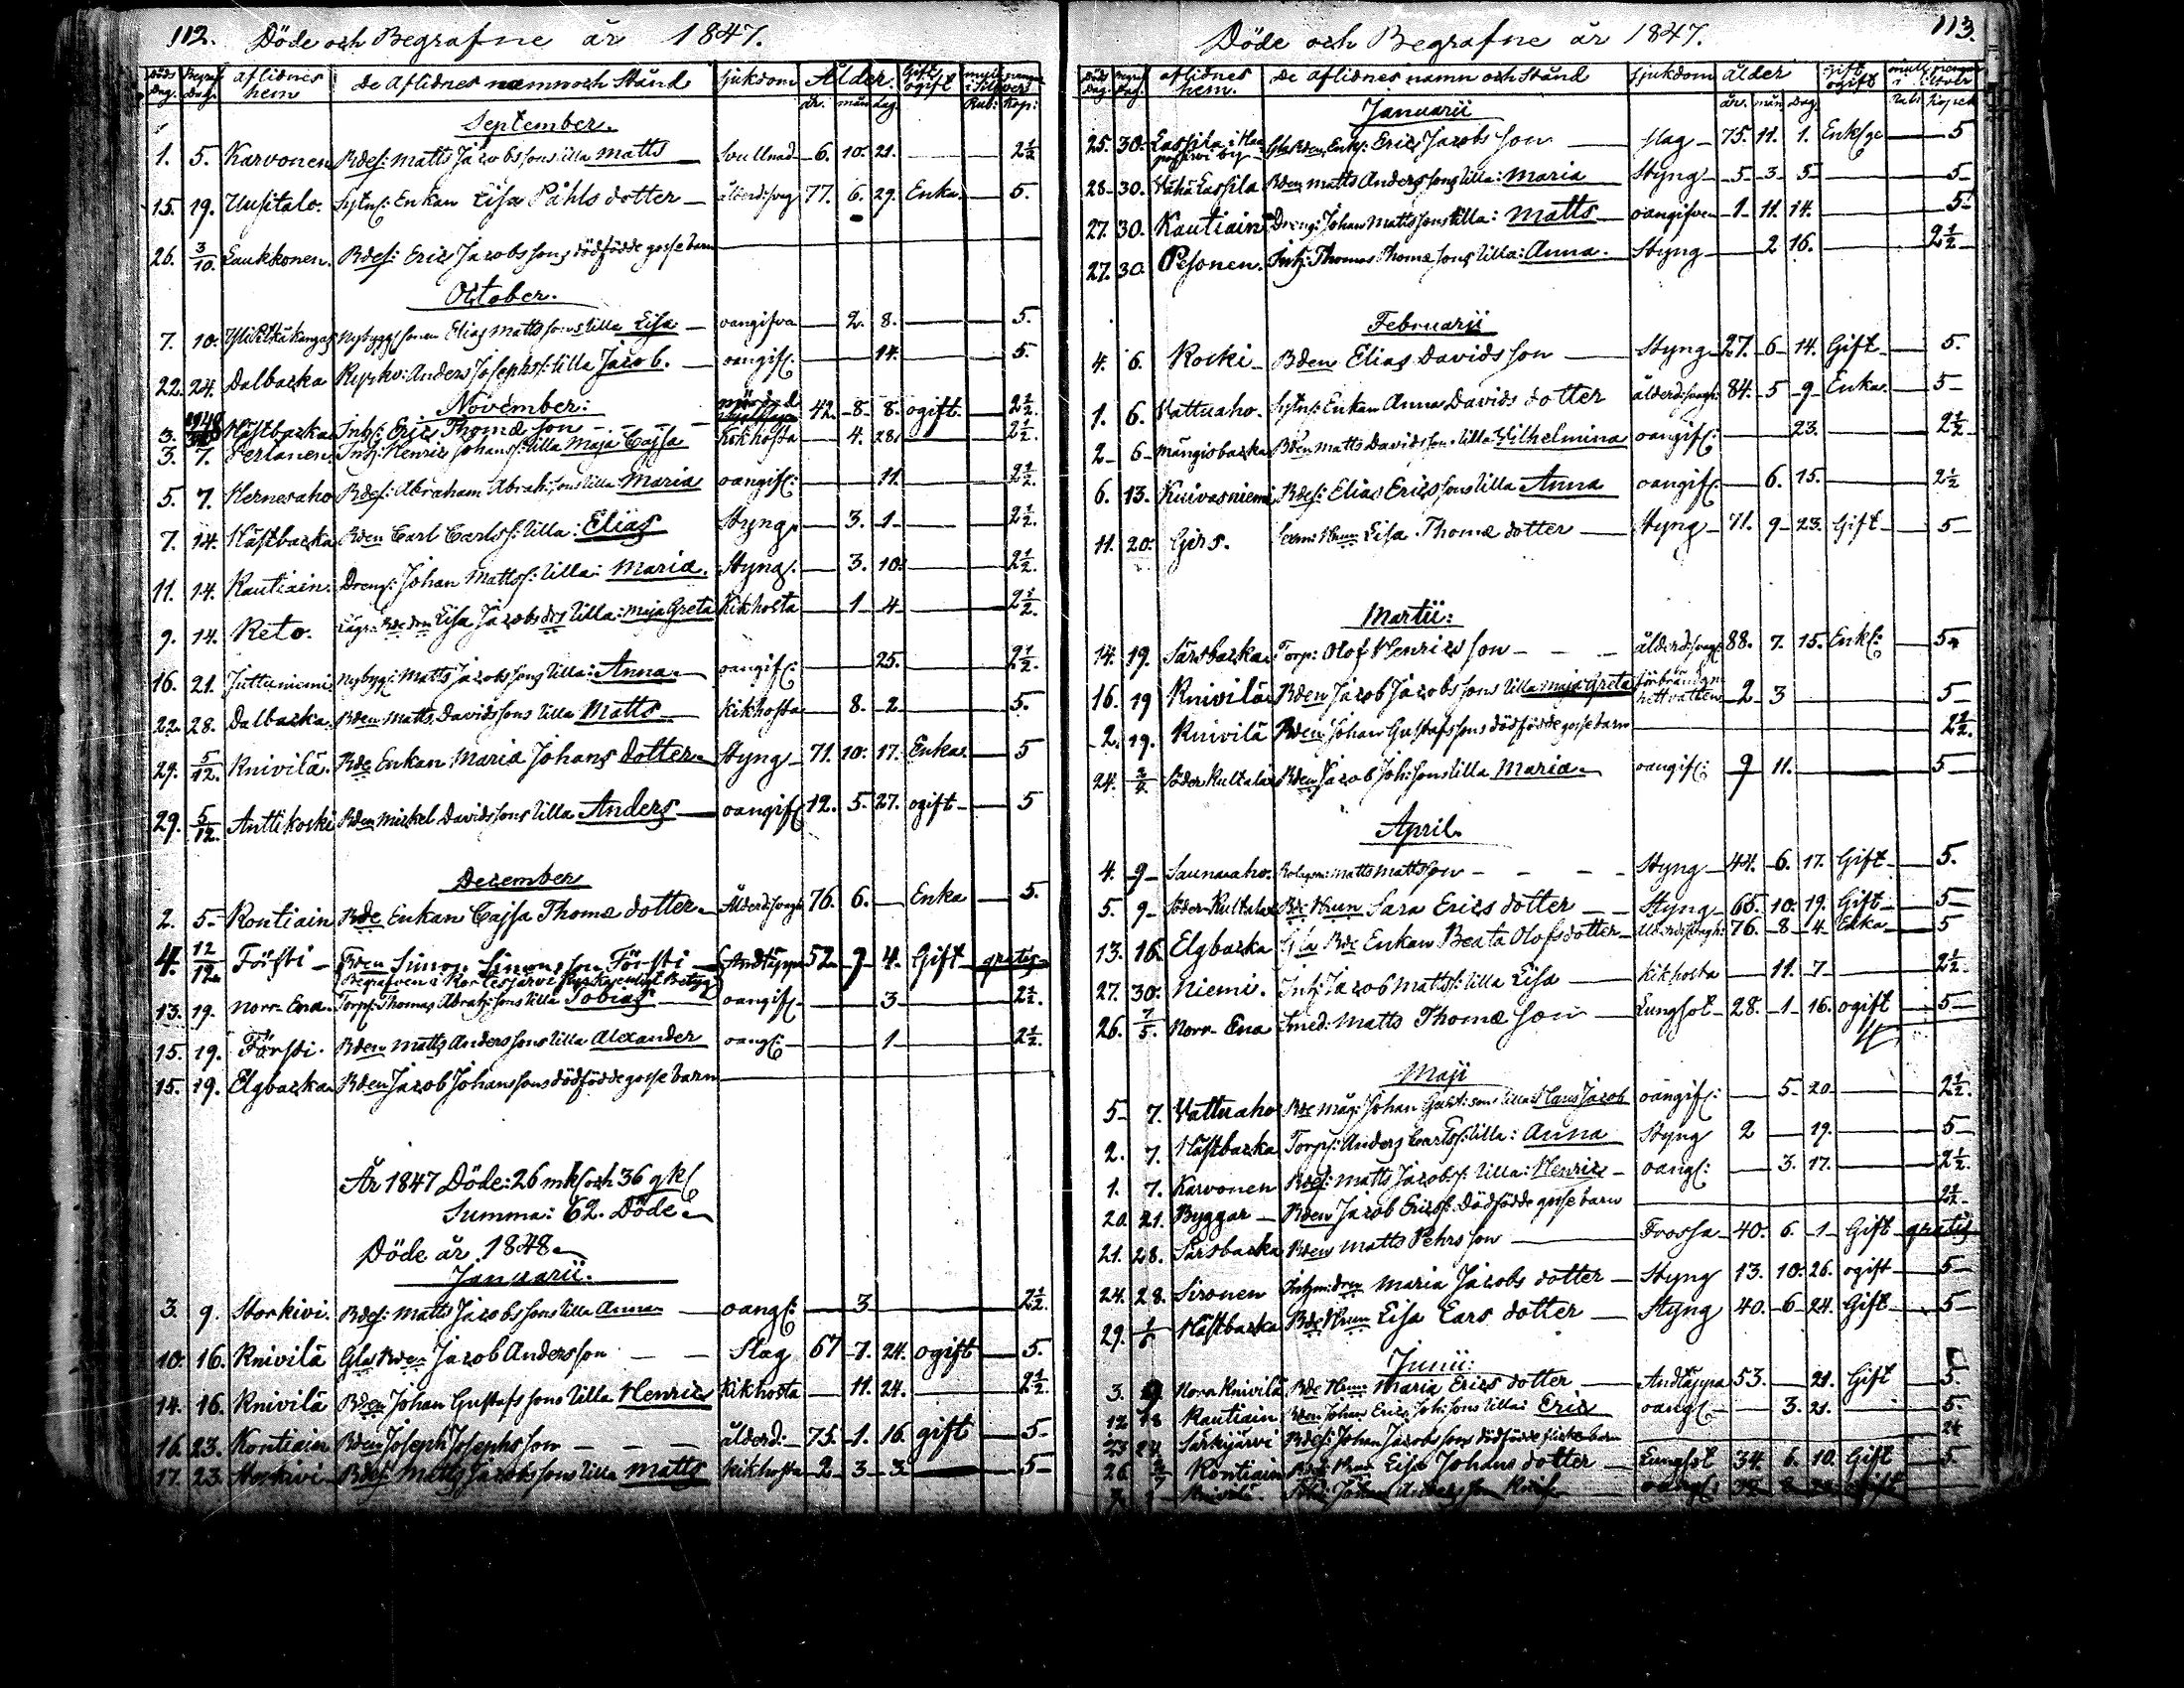 112. Döde och Begrafne år 1847.
Döds Dag. Begraf Dag. aflidnes hem De Aflidnes namn och Stånd Sjukdom Ålder. Gift ogift
år. mån dag. Rub: Kop:
September.
1. 5. Karvonen Bdes: Matts Jacobssons lilla Matts Svullnad 6. 10. 21. 2½
15. 19. Uusitalo. Enkan Lisa Påhls dotter 77. 6. 29. Enka. 5.
26. 3/10. Laukkonen. Bdes: Eric Jacobssons dödfödde gossebarn
October.
7. 10. Nybyggssonen Elias Mattssons lilla Lisa oangifva 2. 8. 5.
22. 24. Dalbacka Anders Josephss: lilla Jacob. oangif: 14. 5.
November:
3. Hästbacka Inh: Eric Thomæ son 42. 8. 8. ogift 2½.
3. 7. Perlanen. Inh: Henric Johanss: lilla Maja Cajsa Kikhosta 4. 28. 2½.
5. 7. Hernesaho Bdes: Abraham Abrah:sons lilla Maria oangif: 11. 2½.
7. 14. Hästbacka Bden Carl Carlss: lilla: Elias Styng. 3. 1. 2½.
11. 14. Kautiain: Dreng: Johan Mattss: lilla: Maria. Styng. 3. 10. 2½.
9. 14. Keto. Lisa Jacobs drs lilla: Maja Greta Kikhosta 1 4 2½.
16. 21. Juttuniemi Nybygg: Matts Jacobssons lilla: Anna. oangif: 25. 2½.
22. 28. Dalbacka. Bden Matts Davidssons lilla Matts Kikhosta 8. 2 5.
29. 5/12. Knivilä. Bde Enkan Maria Johans dotter. Styng 71. 10. 17. Enka. 5
29. 5/12. Anttikoski Bden Mickel Davidssons lilla Anders oangif: 12. 5. 27. ogift 5
December
2. 5. Kontiain Bde Enkan Cajsa Thomæ dotter. 76. 6. Enka 5.
4. 12/12. Försti Bden Simon Simonsson Försti Andtäppa 52 7 4. Gift gratis
Begrafven i Kortesjärvi
13. 19. Norr-Ena. Torp: Thomas Abrah:sons lilla Tobias oangif: 3 2½.
15. 19. Försti. Bden Matts Anderssons lilla Alexander oang: 1 2½.
15. 19. Elgbacka Bden Jacob Johanssons dödfödde gossebarn
År 1847 Döde: 26 mk och 36 qk
Summa: 62. Döde.
Döde år 1848.
Januarii.
3. 9. Storkivi. Bdes: Matts Jacobssons lilla Anna oang: 3 2½.
10. 16. Knivilä Gla Bden Jacob Andersson Slag 67 7. 24. ogift 5.
14. 16. Knivilä Bden Johan Gustafssons lilla Henric Kikhosta 11. 24. 2½.
16. 23. Kontiain Bden Joseph Josephsson ålderd: 75. 1. 16. gift 5
17. 23. Storkivi Bdes: Matts Jacobssons lilla Matts Kikhosta 2 3 3 5
113.
Döde och Begrafne år 1847.
Döds Dag. Begraf Dag. aflidnes hem. De aflidnes namn och Stånd Sjukdom ålder gift ogift
års. mån. Dag. Rub: Kopek
Januarii
25. 30. Lassila Enk: Eric Jacobsson slag 75. 11. 1. 5
28. 30. Vähä Lassila Bden Matts Anderssons lilla: Maria Styng 5 3 5 5
27. 30. Kautiain Dreng: Johan Mattssons lilla: Matts oangifven 1 11. 14. 5
27. 30. Pesonen. Inh: Thomas Thomæ sons lilla: Anna. Styng 2 16. 2½
Februarii
4. 6. Kocki Bden Elias Davidsson Styng 27. 6 14. Gift 5.
1. 6. Vattuaho. Enkan Anna Davids dotter 84. 5 9 Enka. 5
2 6 Mångisbacka Bden Matts Davidsson lilla Wilhelmina oangif: 23. 2½
6. 13. Kuivasniemi Bdes: Elias Ericssons lilla Anna oangif: 6. 15. 2½
11. 20. Girs. Lisa Thomæ dotter Styng 71. 9 23. Gift 5
Martii:
14. 19. Särsbacka Torp: Olof Henricsson 88. 7. 15. Enkl: 5
16. 19 Knivilä Bden Jacob Jacobssons lilla Maja Greta hett vatten 2 3 5
2. 19. Knivilä Bden Johan Gustafssons dödfödde gossebarn 2½.
24. Söder Kultalax Bden Jacob Joh:sons lilla Maria. oangif: 9 11. 5
April.
4. 9 Saunaaho. Matts Mattsson Styng 44. 6. 17. Gift 5.
5. 9 Söder Kultalax Bde Hrun Sara Erics dotter Styng 65. 10. 19. Gift 5
13. 16. Elgbacka Gla Bde Enkan Beata Olofsdotter 76. 8 4 Enka 5
27. 30. Niemi. Inh: Jacob Mattss: lilla Lisa Kikhosta 11. 7 2½
26. 7/5. Norr-Ena Smed: Matts Thomæ son Lungsot 28. 1 16. ogift 5
Maji
5 7. Vattuaho Bde måg: Johan lilla Hans Jacob oangif: 5 20 2½.
2. 7. Hästbacka Torp: Anders Carlss: lilla: Anna Styng 2 19. 5
1. 7. Karvonen Bdes: Matts Jacobss: lilla: Henric oang: 3. 17. 2½.
20. 21. Byggar Bden Jacob Ericss: Dödfödde gossebarn 2½
21. 28. Särsbacka Bden Matts Pehrsson Frossa 40. 6. 1 Gift gratis
24. 28. Sironen Maria Jacobs dotter Styng 13. 10. 26. ogift 5
29. Hästbacka Bde Hrun Lisa Lars dotter Styng 40. 6 24. Gift 5
Junii:
3. 9 Norr Knivilä Bde Hrun Maria Erics dotter Andtäppa 53. 21. Gift 5.
12 18 Kautiain Bden Johan Eric Joh:sons lilla: Eric oang: 3. 21. 5.
23 24 Särkijärvi Bdes: Johan Jacobssons dödfödde flickebarn
26. Kontiain Lisa Johans dotter Lungsot 34. 6. 10. Gift 5.
Knivilä